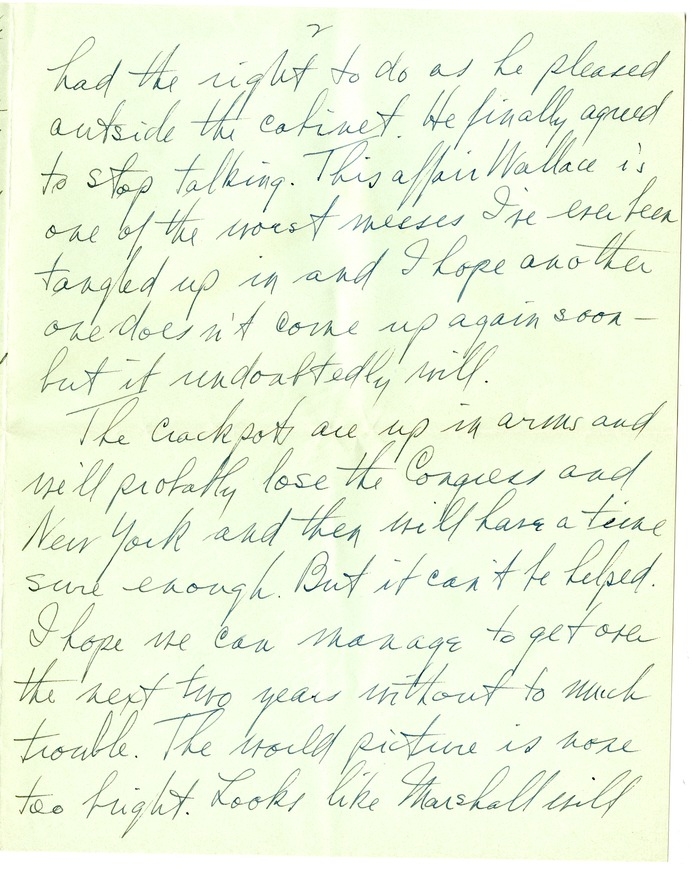 2
had the right to do as he pleased
outside the cabinet. He finally agreed
to stop talking. This affair Wallace is
one of the worst messes I've ever been
tangled up in and I hope another
one does n't come up again soon—
but it undoubtedly will.
The crackpots are up in arms and
we'll probally lose the Congress and
New York and then we'll have a time
sure enough. But it can't be helped.
I hope we can manage to get over
the next two years without to much
trouble. The world picture is none
too bright. Looks like Marshall will